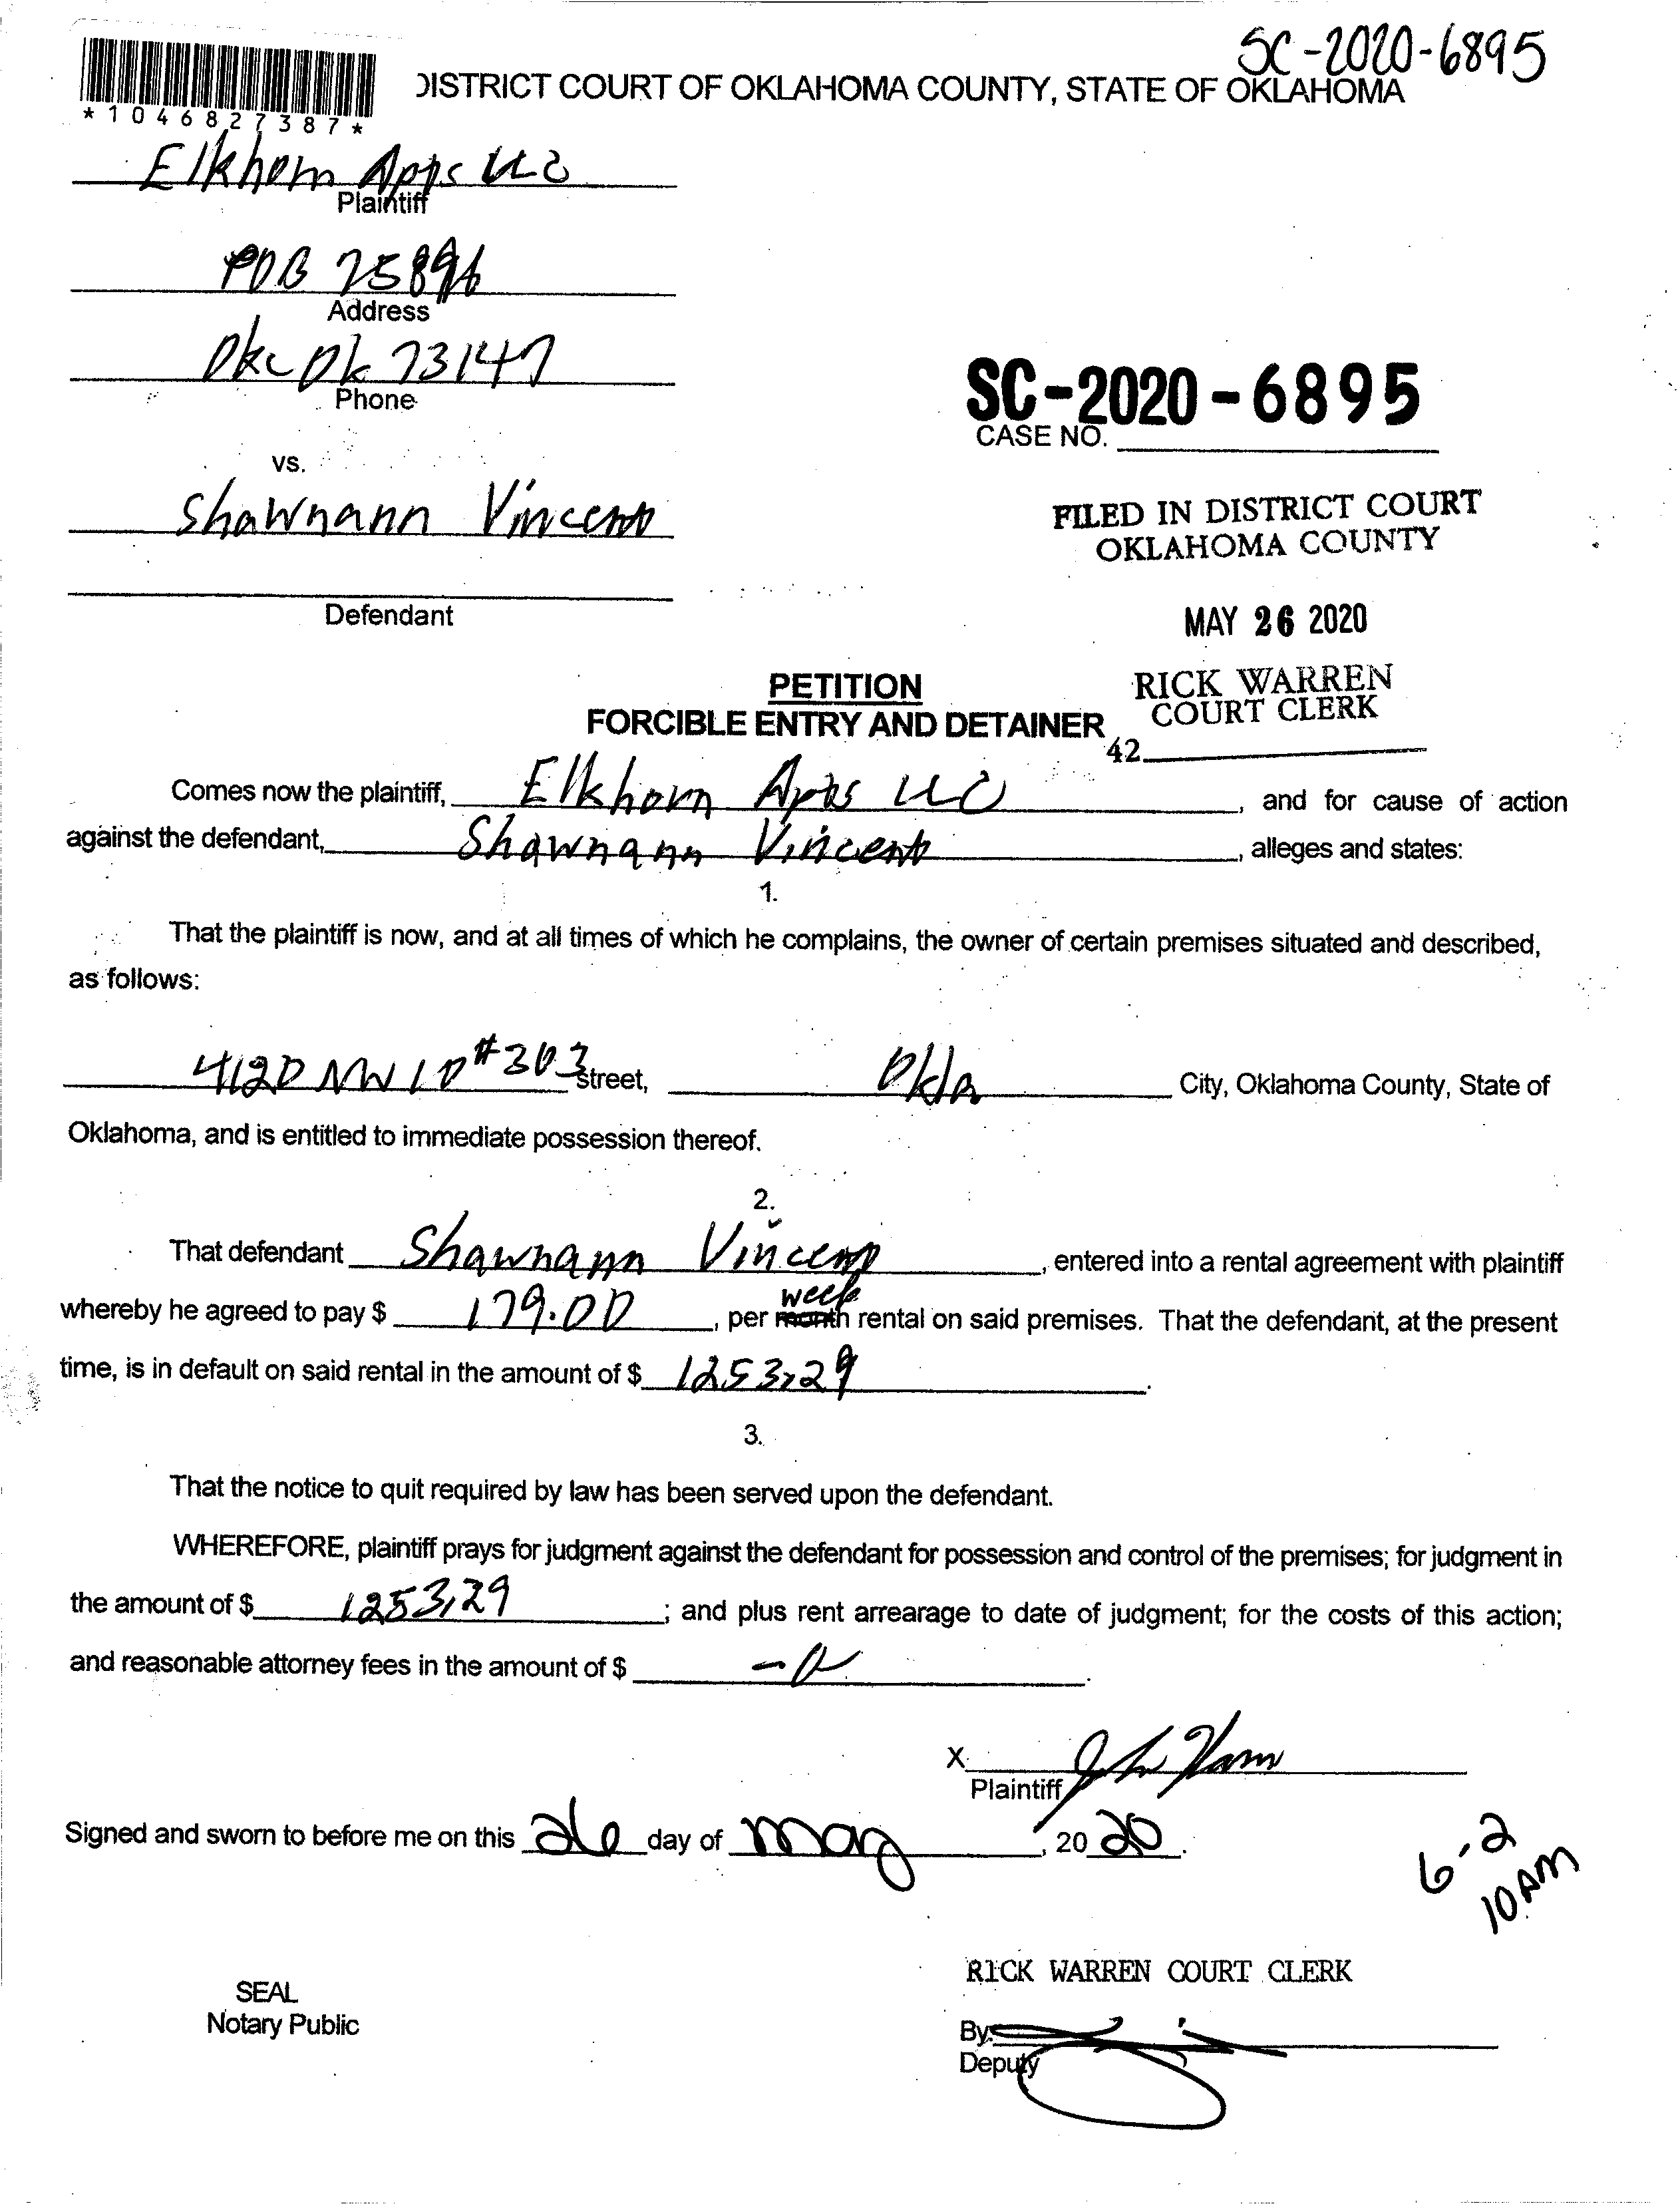 SC-2020-6895
DISTRICT COURT OF OKLAHOMA COUNTY, STATE OF OKLAHOMA
*1046827387*
Elkhorn Apts LLC
Plaintiff
POB 75896
Address
Okc Ok 73147
Phone
SC-2020-6895
CASE NO.
vs.
Shawnann Vincent
FILED IN DISTRICT COURT
OKLAHOMA COUNTY
Defendant
MAY 26 2020
PETITION
RICK WARREN
FORCIBLE ENTRY AND DETAINER
COURT CLERK
42
Comes now the plaintiff, Elkhorn Apts LLC, and for cause of action
against the defendant, Shawnann Vincent, alleges and states:
1.
That the plaintiff is now, and at all times of which he complains, the owner of certain premises situated and described,
as follows:
4120 NW 10 #303 Street, Okla City, Oklahoma County, State of
Oklahoma, and is entitled to immediate possession thereof.
2.
That defendant Shawnann Vincent, entered into a rental agreement with plaintiff
week
whereby he agreed to pay $ 179.00, per month rental on said premises. That the defendant, at the present
time, is in default on said rental in the amount of $ 1253.29.
3.
That the notice to quit required by law has been served upon the defendant.
WHEREFORE, plaintiff prays for judgment against the defendant for possession and control of the premises; for judgment in
the amount of $ 1253.29; and plus rent arrearage to date of judgment; for the costs of this action;
and reasonable attorney fees in the amount of $
X
Plaintiff
Signed and sworn to before me on this 26 day of May, 2020.
6-2
10AM
RICK WARREN COURT CLERK
SEAL
Notary Public
By:
Deputy